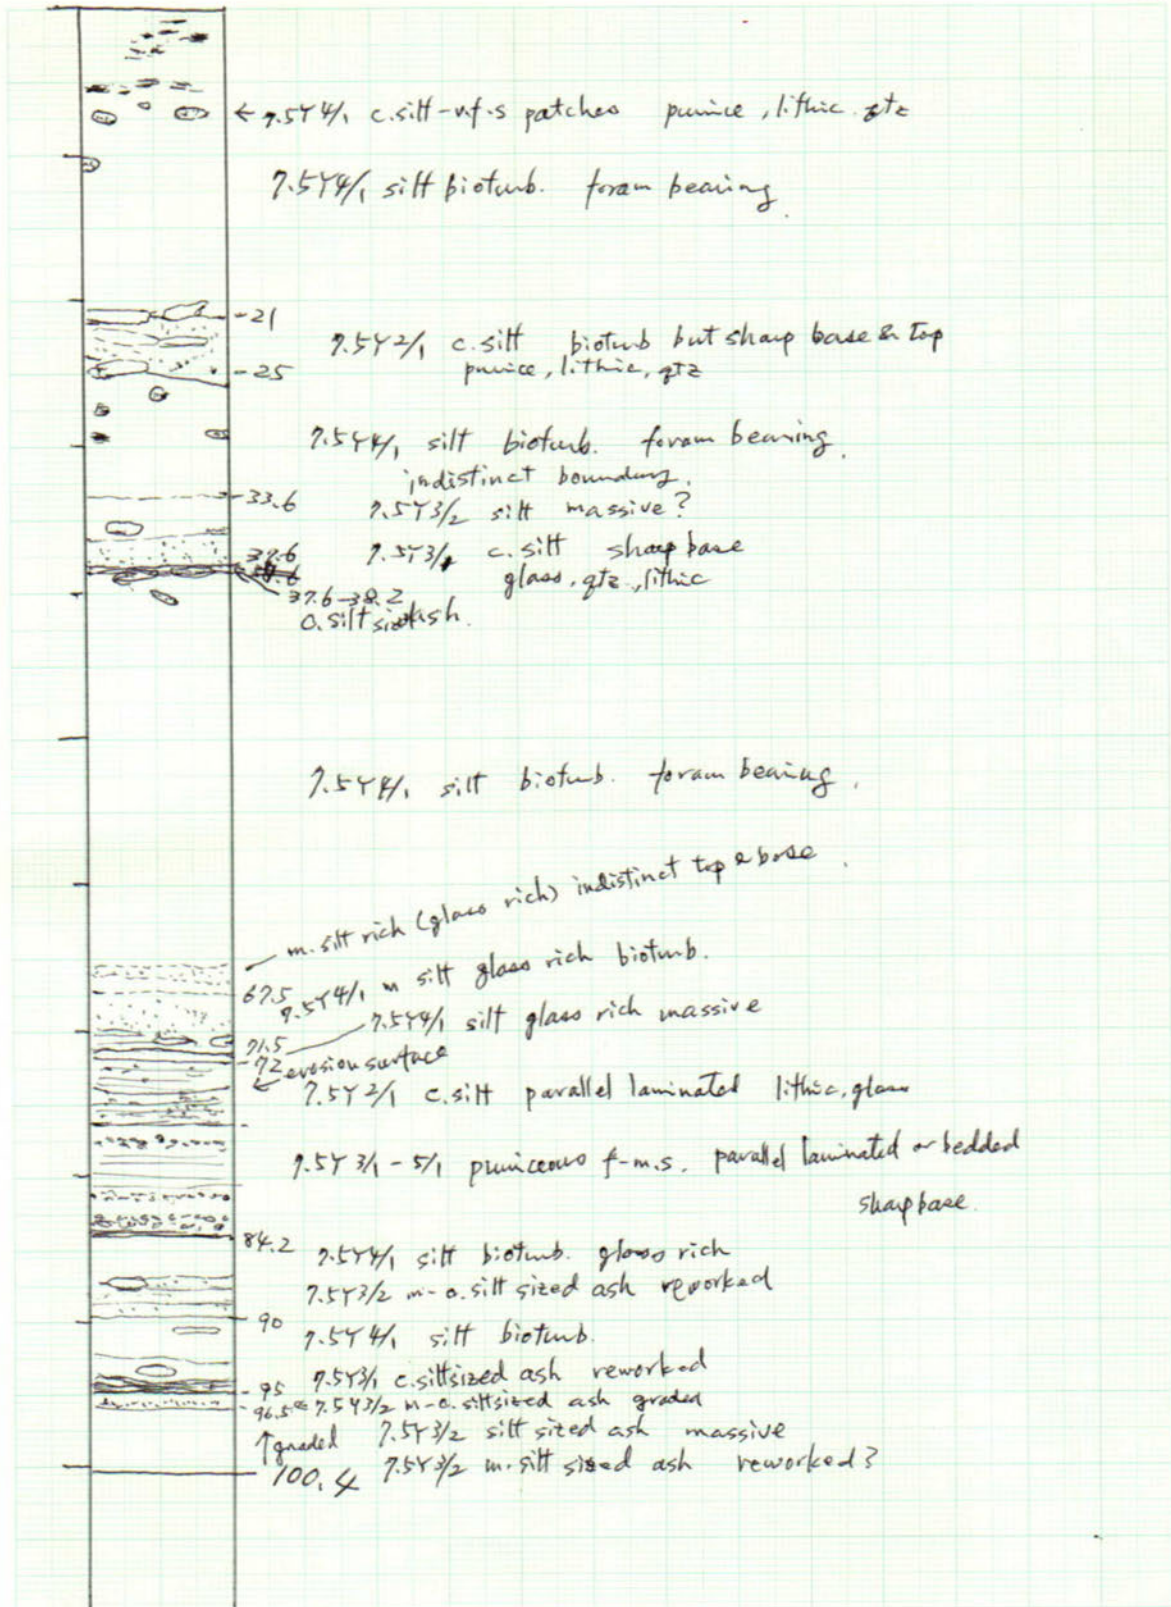 ← 7.5Y 4/1 c.silt-v.f.s patches pumice, lithic. qtz
7.5Y4/1 silt bioturb. foram bearing.
-21
7.5Y2/1 c.silt bioturb but sharp base & top
pumice, lithic, qtz
-25
7.5Y4/1 silt bioturb. foram bearing.
indistinct boundary.
-33.6
7.5Y3/2 silt massive?
37.6 7.5Y3/ c.silt sharp base
glass, qtz, lithic
37.6-38.2
c.silt sized ash.
7.5Y4/1 silt bioturb. foram bearing.
m. silt rich (glass rich) indistinct top & base.
67.5 7.5Y4/1 m silt glass rich bioturb.
7.5Y4/1 silt glass rich massive
71.5
-72
← erosion surface
7.5Y2/1 c.silt parallel laminated lithic, glass
7.5Y 3/1 - 5/1 pumiceous f-m.s. parallel laminated or bedded
sharp base.
84.2
7.5Y4/1 silt bioturb. glass rich
7.5Y3/2 m-c.silt sized ash reworked
-90
7.5Y 4/1 silt bioturb.
7.5Y3/1 c.silt sized ash reworked
-95
-96.5 ← 7.5Y3/2 m-c.silt sized ash graded
↑ graded 7.5Y3/2 silt sized ash massive
100.4 7.5Y3/2 m.silt sized ash reworked?